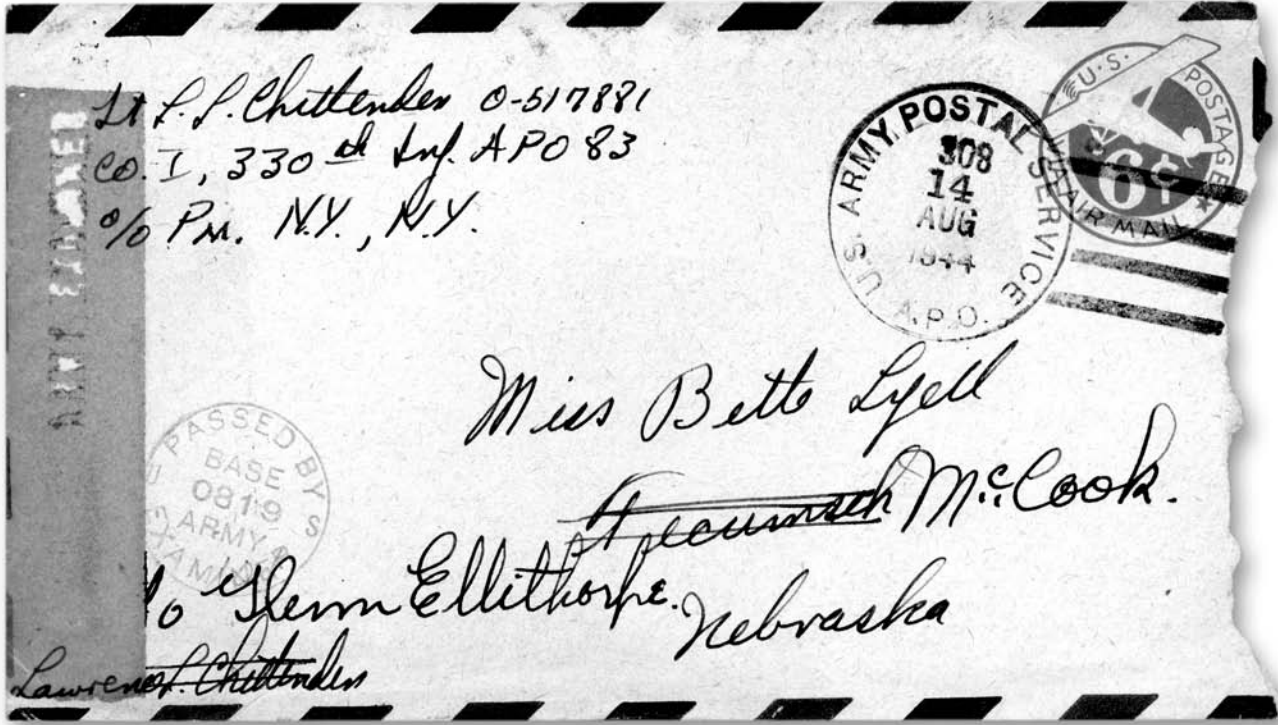 Lt L. L. Chittenden O-517881
Co. I, 330th Inf. APO 83
c/o PM. N.Y., N.Y.
U.S. ARMY POSTAL SERVICE
308
14
AUG
1944
A.P.O.
U.S. POSTAGE
6¢
VIA AIR MAIL
ARMY EXAMINER
PASSED BY
BASE
0819
ARMY
Miss Bette Lyell
Tecumseh McCook.
c/o Glenn Ellithorpe.
Nebraska
Lawrence L. Chittenden